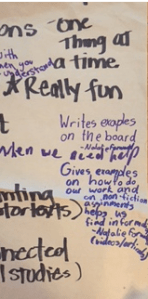 ons - one
Thing at
a time
with
when you
understand
Really fun
Writes exaples
on the board
t
-Natalie
when we need help
Gives examples
on how to do
our work and
on non-fiction
assignments
helps us
find informati
-Natalie
(videos/articles)
nting
tortexts)
nnected
l studies)